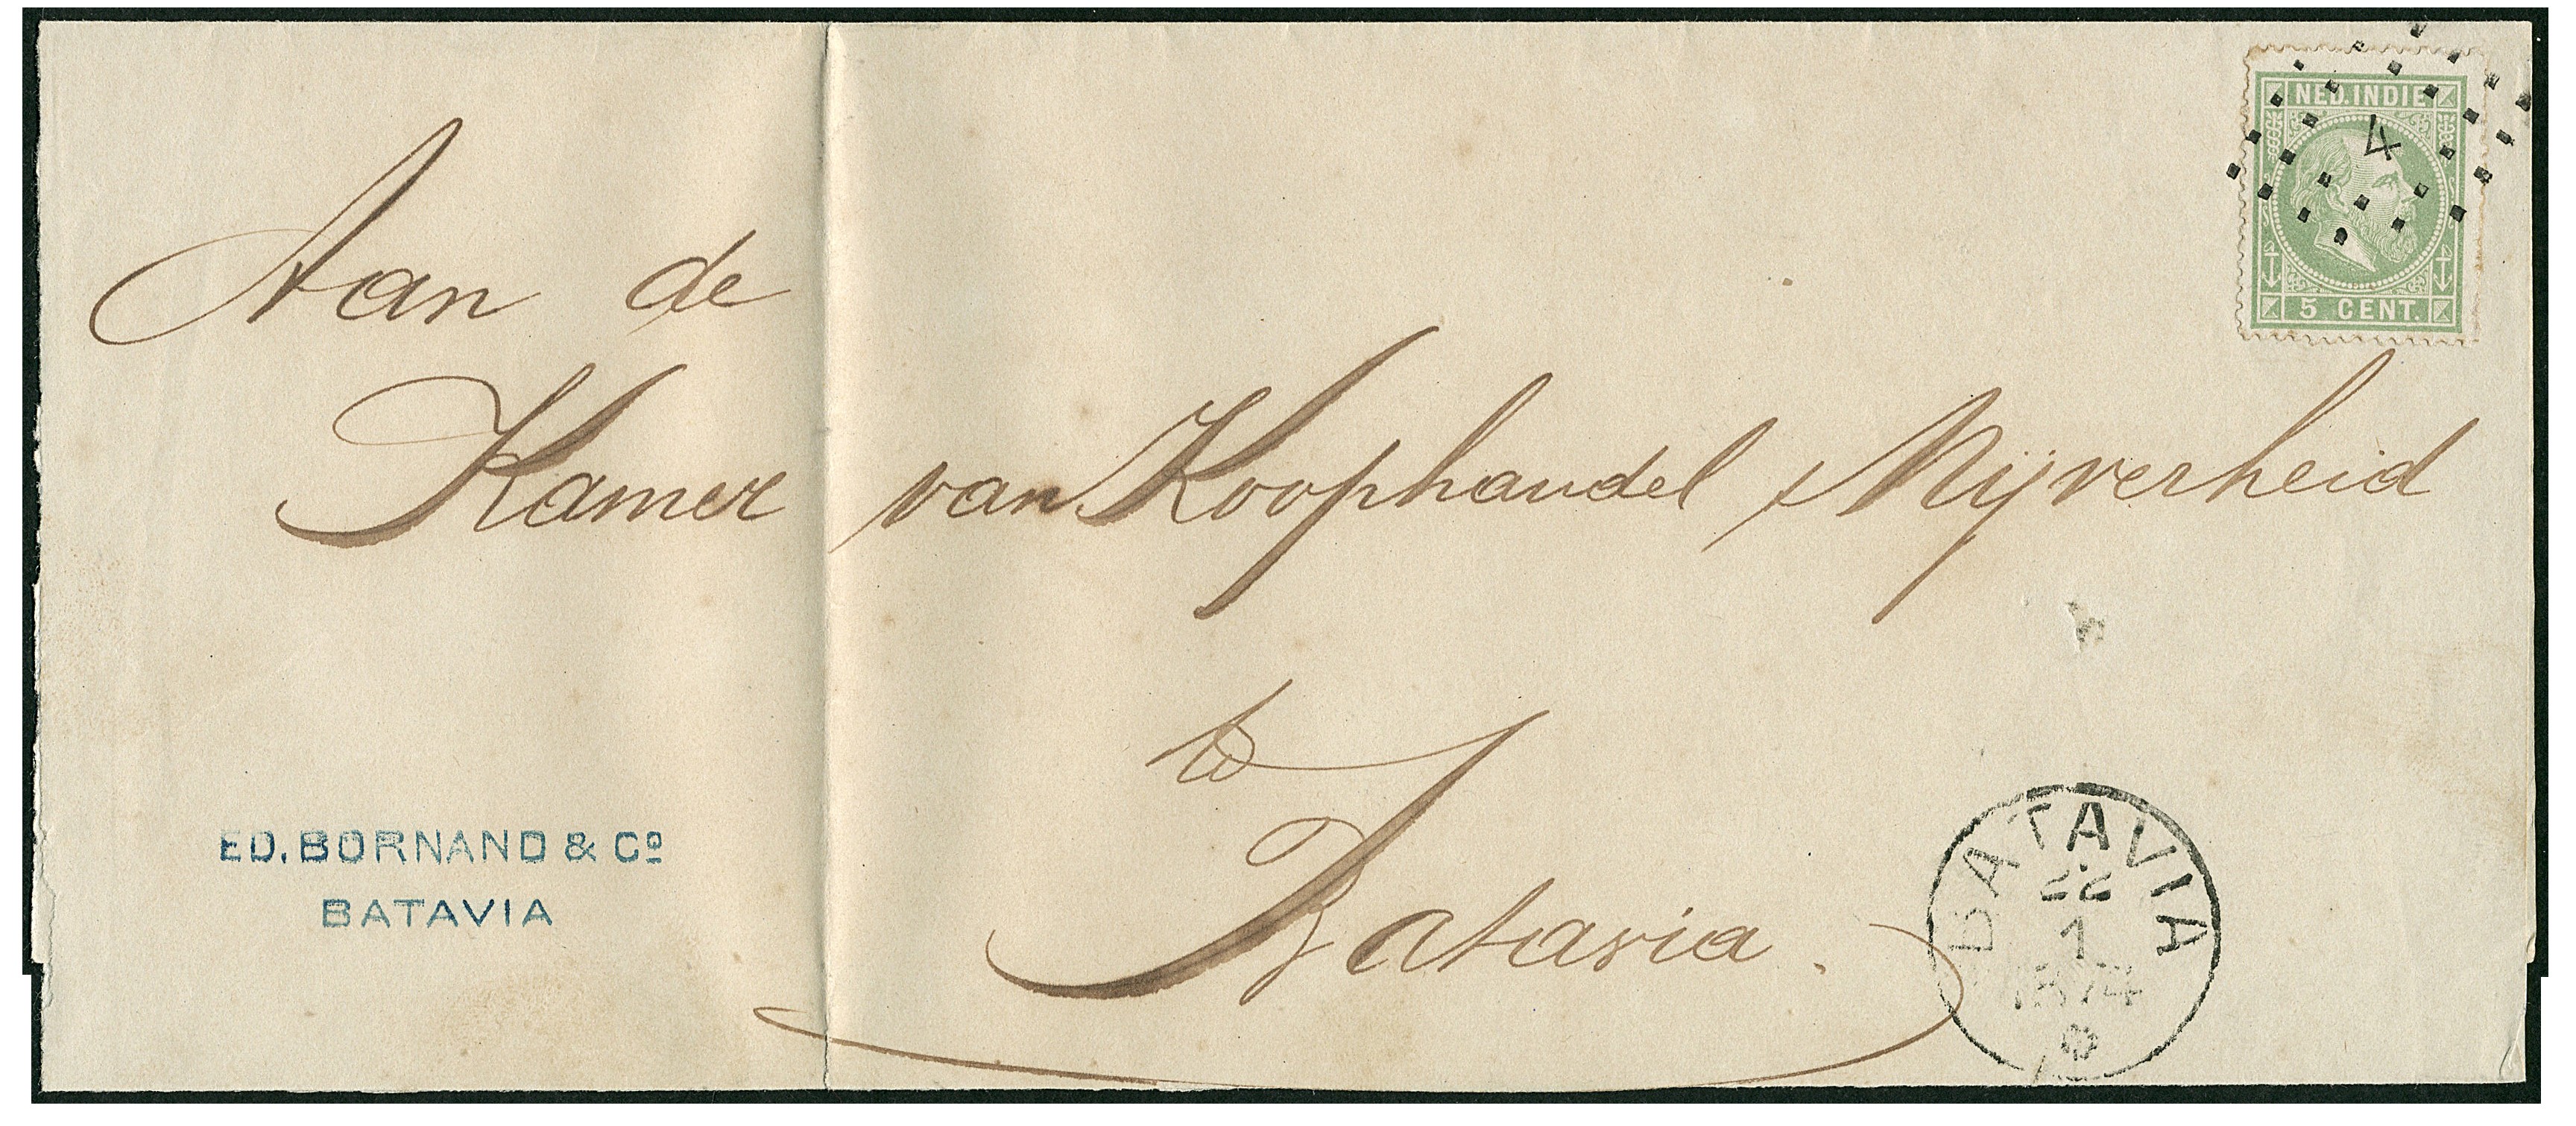 NED. INDIE
4
5 CENT.
Aan de
Kamer van Koophandel & Nijverheid
te
Batavia.
ED. BORNAND & Cº
BATAVIA
BATAVIA
22
1
1874